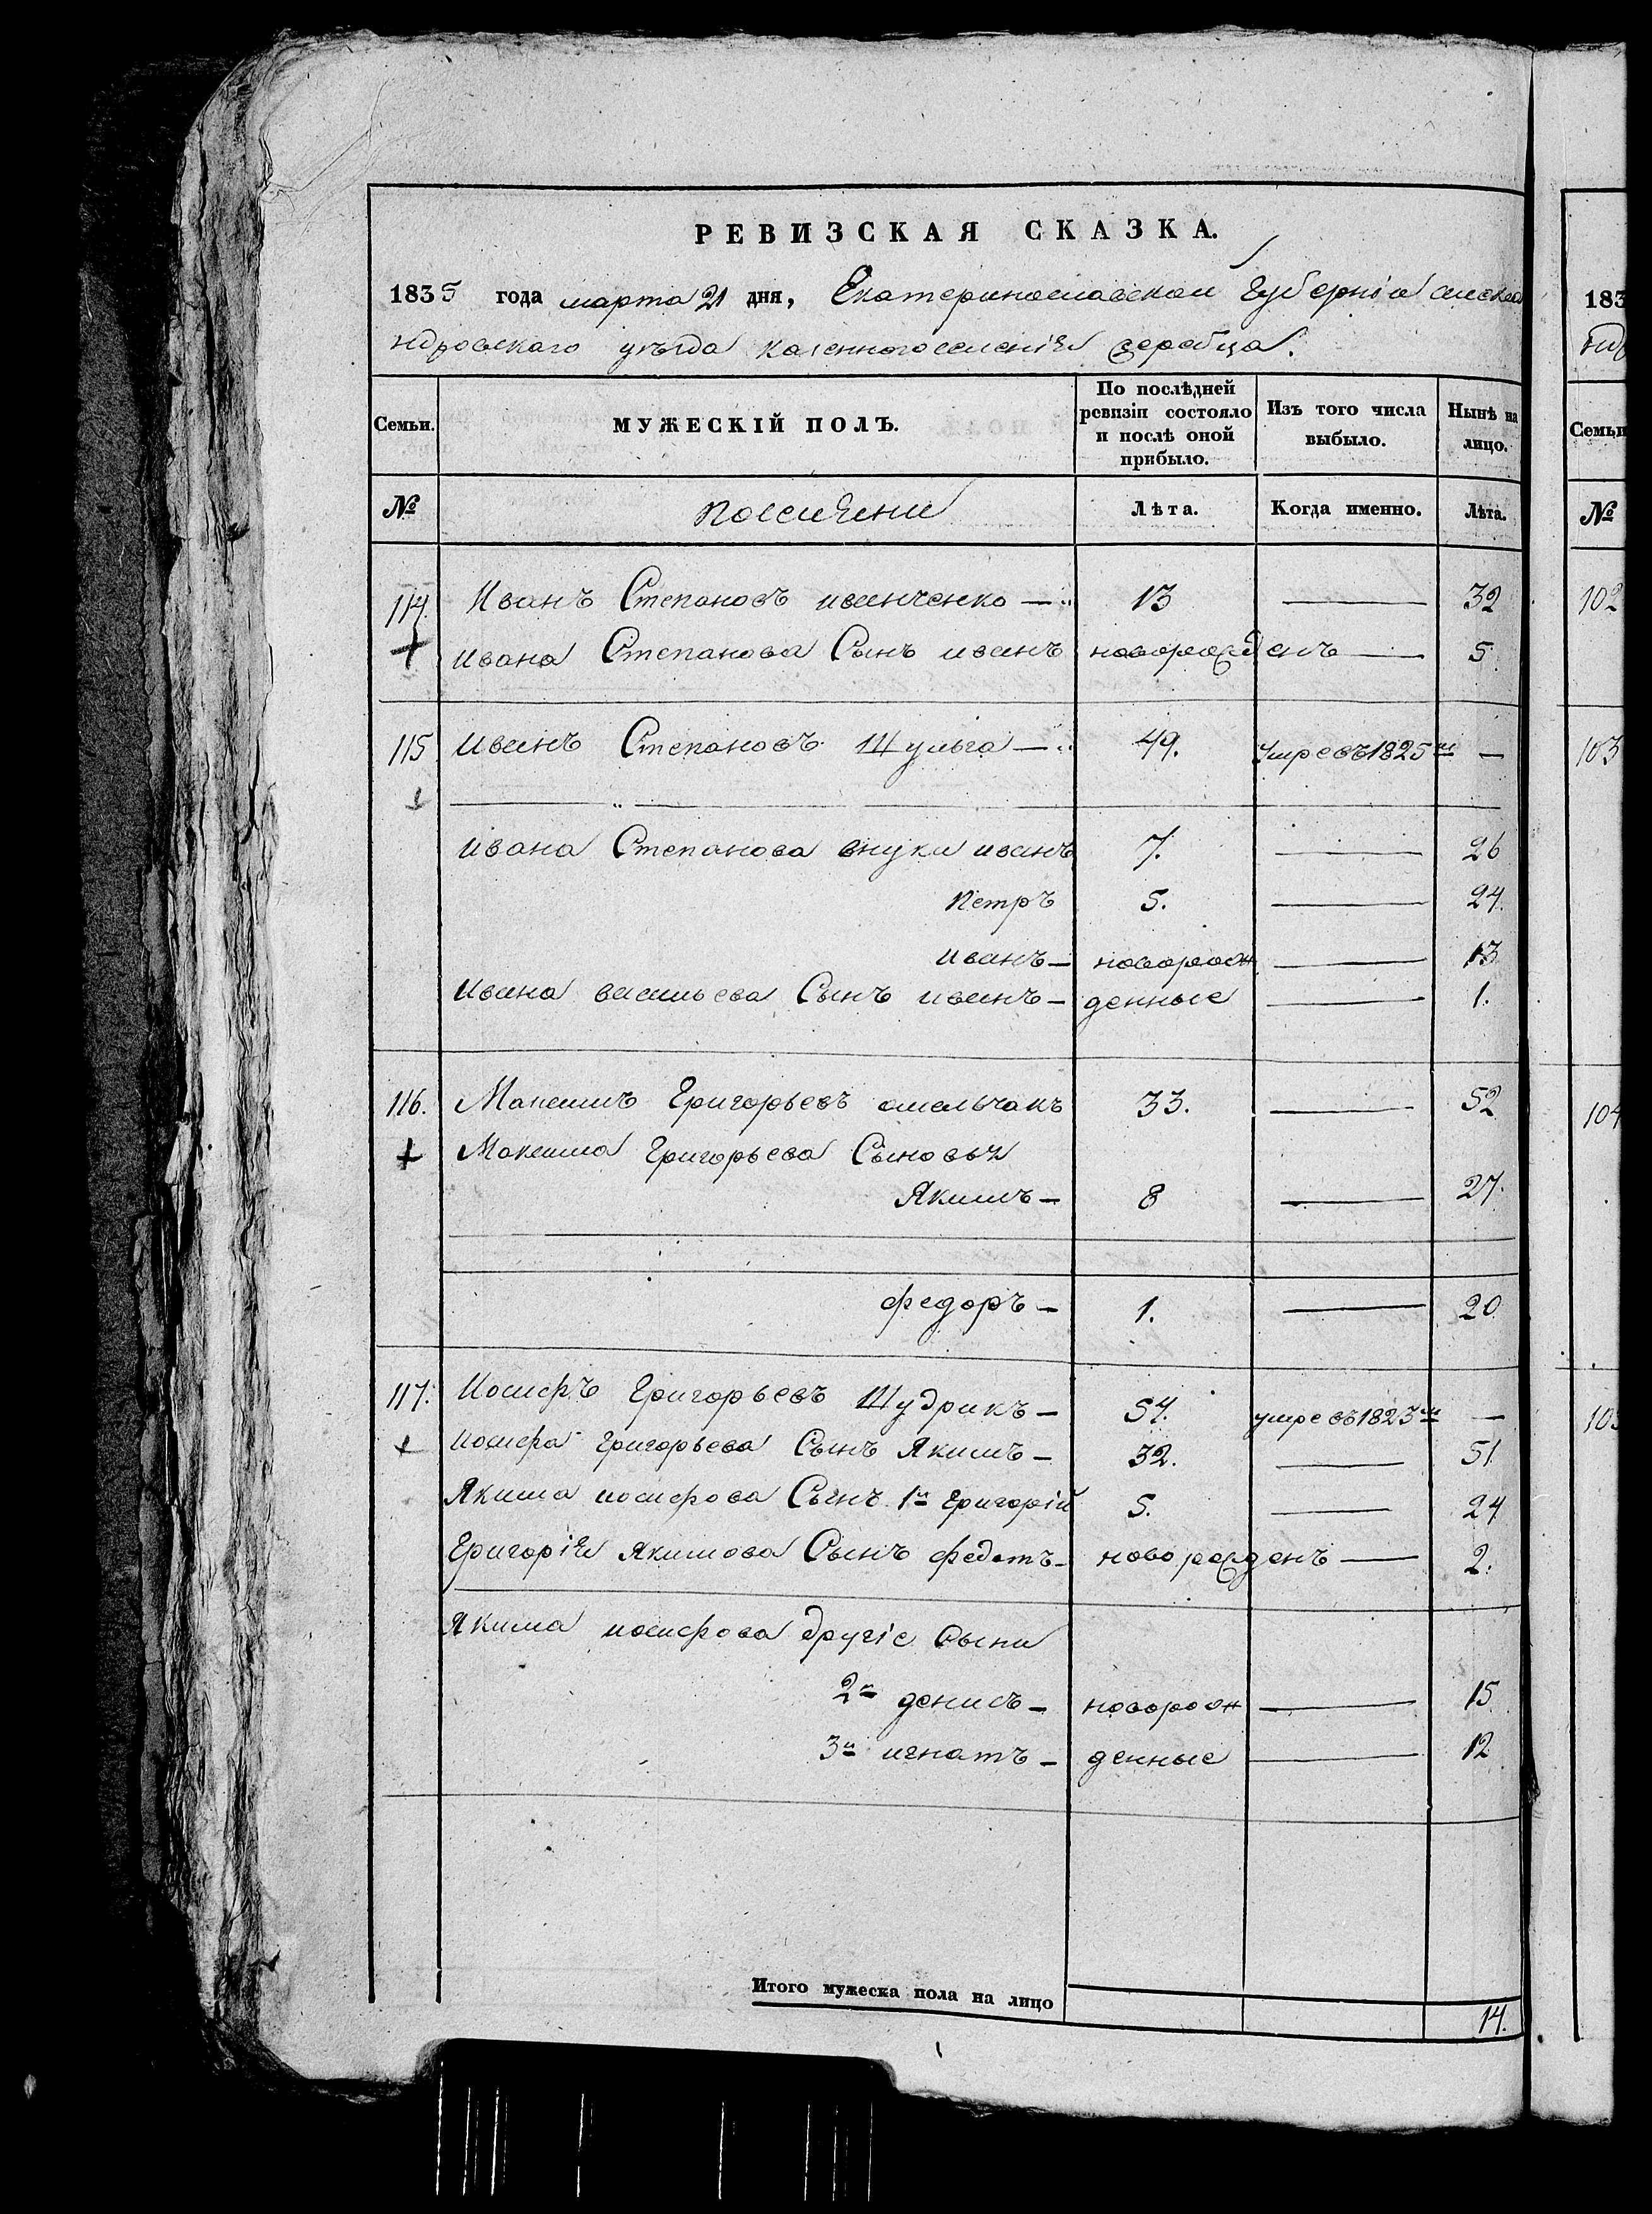 РЕВИЗСКАЯ СКАЗКА.
1835 года марта 21 дня, Екатеринославской Губерніи алекса
ндровскаго уѣзда казенногоселенія жеребца.
Семьи. МУЖЕСКІЙ ПОЛЪ. По послѣдней ревизіи состояло и послѣ оной прибыло. Изъ того числа выбыло. Нынѣ на лицо.
№ поселяни Лѣта. Когда именно. Лѣта.
114. Иванъ Степановъ иванченко — 13 — 32
ивана Степанова Сынъ иванъ новорожденъ — 5
115 иванъ Степановъ Шульга — 49. умре въ 1825 м —
ивана Степанова внуки иванъ 7. — 26
петръ 5. — 24.
иванъ — новорож — 13
ивана васильева Сынъ иванъ — денные — 1.
116. Максимъ Григорьевъ омельчакъ 33. — 52
Максима Григорьева Сыновья
Якимъ — 8 — 27.
федоръ — 1. — 20
117. Иосифъ Григорьевъ Щудрикъ — 57. умре въ 1823 м —
иосифа Григорьева Сынъ Якимъ — 32. — 51
Якима иосифова Сынъ 1й Григорій 5. — 24
Григорія Якимова Сынъ федотъ — новорожденъ — 2.
Якима иосифова другіе Сыни
2й денисъ — новорож — 15
3й игнатъ — денные — 12
Итого мужеска пола на лицо 14.
183
Семьи
№
102
103
104